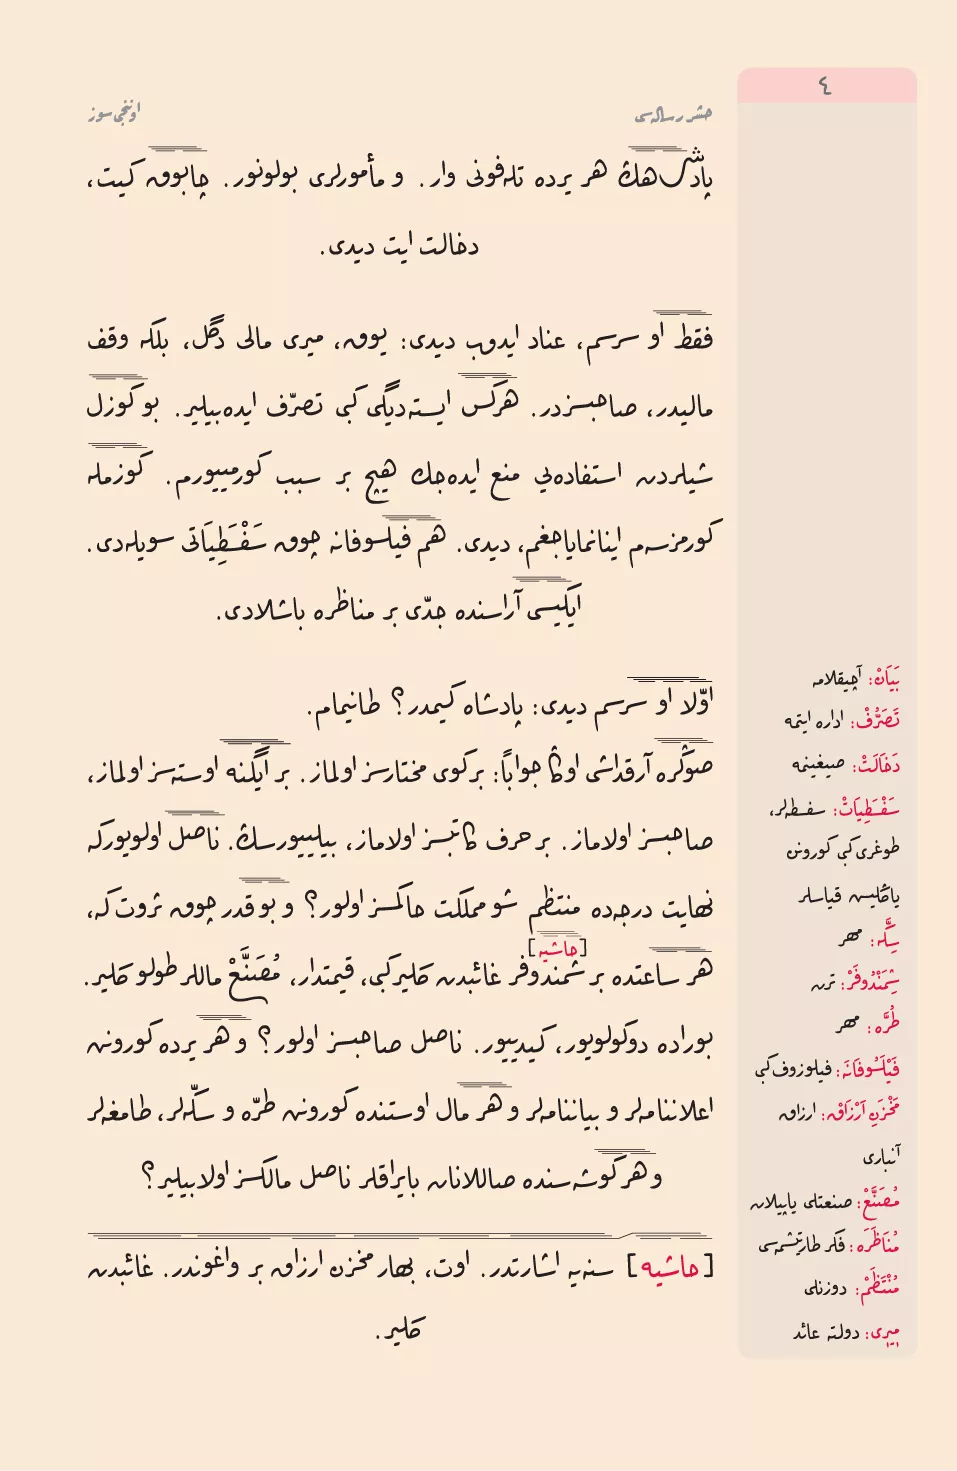 ٤
حشر رساله‌سی
اوننجی سوز
پادشاهڭ هر يرده تله‌فونی وار. و مأمورلری بولونور. چابوق كيت،
دخالت ايت ديدی.
فقط او سرسم، عناد ايدوب ديدی: يوق، ميری مالی دگل، بلكه وقف
ماليدر، صاحبسزدر. هركس ايسته‌ديگی كبی تصرّف ايده‌بيلير. بو كوزل
شيلردن استفاده‌يی منع ايده‌جك هيچ بر سبب كورمييورم. كوزمله
كورمزسه‌م اينانماياجغم، ديدی. هم فيلسوفانه چوق سَفْسَطِيَاتی سويله‌دی.
ايكيسی آراسنده جدّی بر مناظره باشلادی.
اوّلا او سرسم ديدی: پادشاه كيمدر؟ طانيمام.
صوڭره آرقداشی اوڭا جواباً: بر كوی مختارسز اولماز. بر ايگنه اوسته‌سز اولماز،
صاحبسز اولاماز. بر حرف كاتبسز اولاماز، بيلييورسڭ. ناصل اولويوركه
نهايت درجه‌ده منتظم شو مملكت حاكمسز اولور؟ و بو قدر چوق ثروت كه،
هر ساعتده بر شمندوفر [حاشيه] غائبدن گلير كبی، قيمتدار، مُصَنَّعْ ماللر طولو گلير.
بوراده دوكولويور، كيدييور. ناصل صاحبسز اولور؟ و هر يرده كورونن
اعلاننامه‌لر و بياننامه‌لر و هر مال اوستنده كورونن طرّه و سكّه‌لر، طامغه‌لر
و هر كوشه‌سنده صاللانان بايراقلر ناصل مالكسز اولابيلير؟
[حاشيه] سنه‌يه اشارتدر. اوت، بهار مخزن ارزاق بر واغوندر. غائبدن
گلير.
بَيَانْ: آچيقلامه
تَصَرُّفْ: اداره ايتمه
دَخَالَتْ: صيغينمه
سَفْسَطِيَاتْ: سفسطه‌لر،
طوغری كبی كورونن
ياڭليش قياسلر
سِكَّه: مهر
شِمَنْدُوفَرْ: ترن
طُرَّه: مهر
فَيْلَسُوفَانَه: فيلوزوف كبی
مَخْزَنِ اَرْزَاقْ: ارزاق
آنباری
مُصَنَّعْ: صنعتلی ياپيلان
مُنَاظَرَه: فكر طارتيشمه‌سی
مُنْتَظَمْ: دوزنلی
ميری: دولته عائد